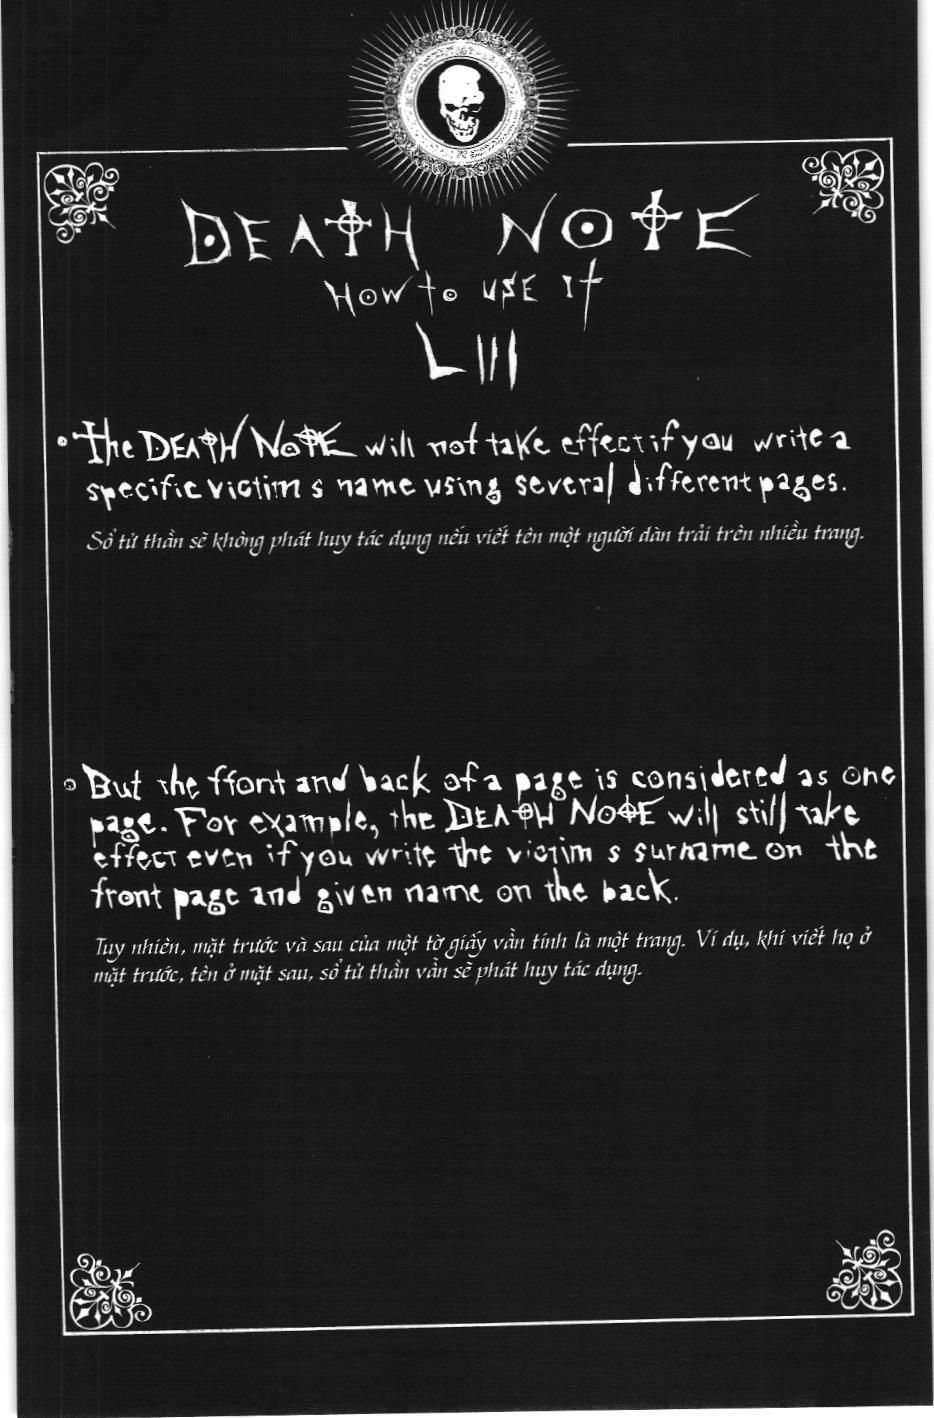 DEATH NOTE
HOW to USE It
LIII
The DEATH NOTE will not take effect if you write a
specific victim s name using several different pages.
Sổ tử thần sẽ không phát huy tác dụng nếu viết tên một người dàn trải trên nhiều trang.
But the ffont and back of a page is considered as one
page. For example, the DEATH NOTE will still take
effect even if you write the victim s surname on the
front page and given name on the back.
Tuy nhiên, mặt trước và sau của một tờ giấy vẫn tính là một trang. Ví dụ, khi viết họ ở
mặt trước, tên ở mặt sau, sổ tử thần vẫn sẽ phát huy tác dụng.